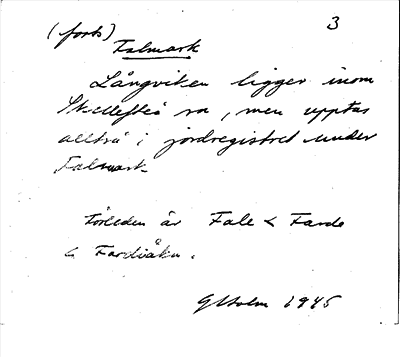 (forts) 3
Falmark
Långviken ligger inom
Skellefteå sn, men upptas
alltså i jordregistret under
Falmark.
Förleden är Fale < Farde
< Fardiåkn.
G Holm 1945